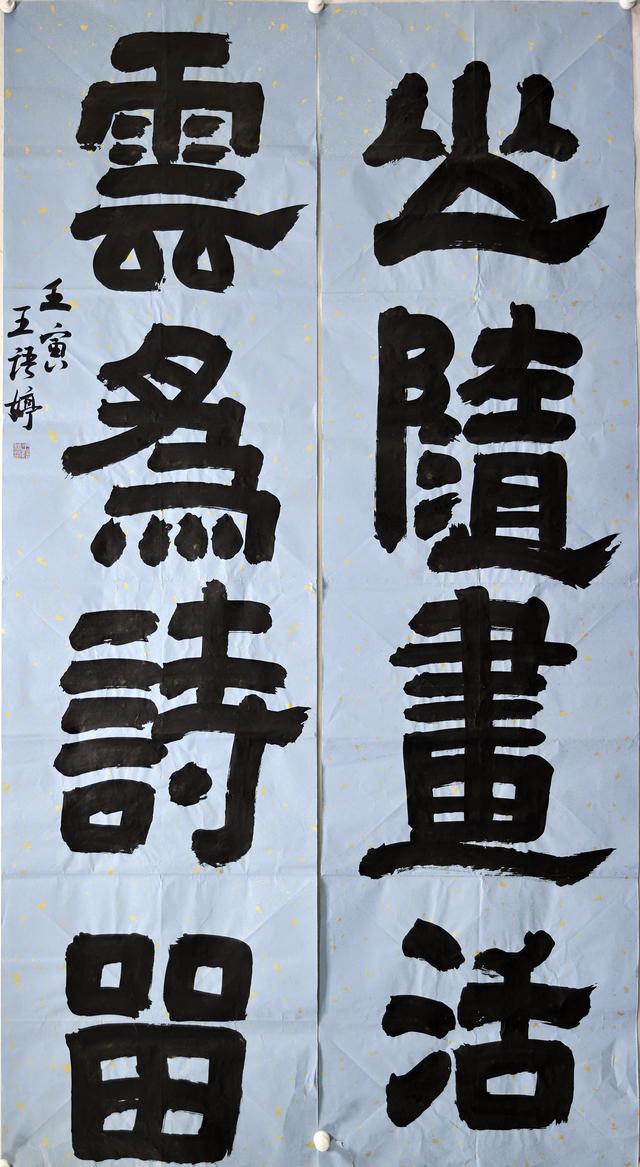 山隨畫活
雲為詩留
壬寅
王語婷